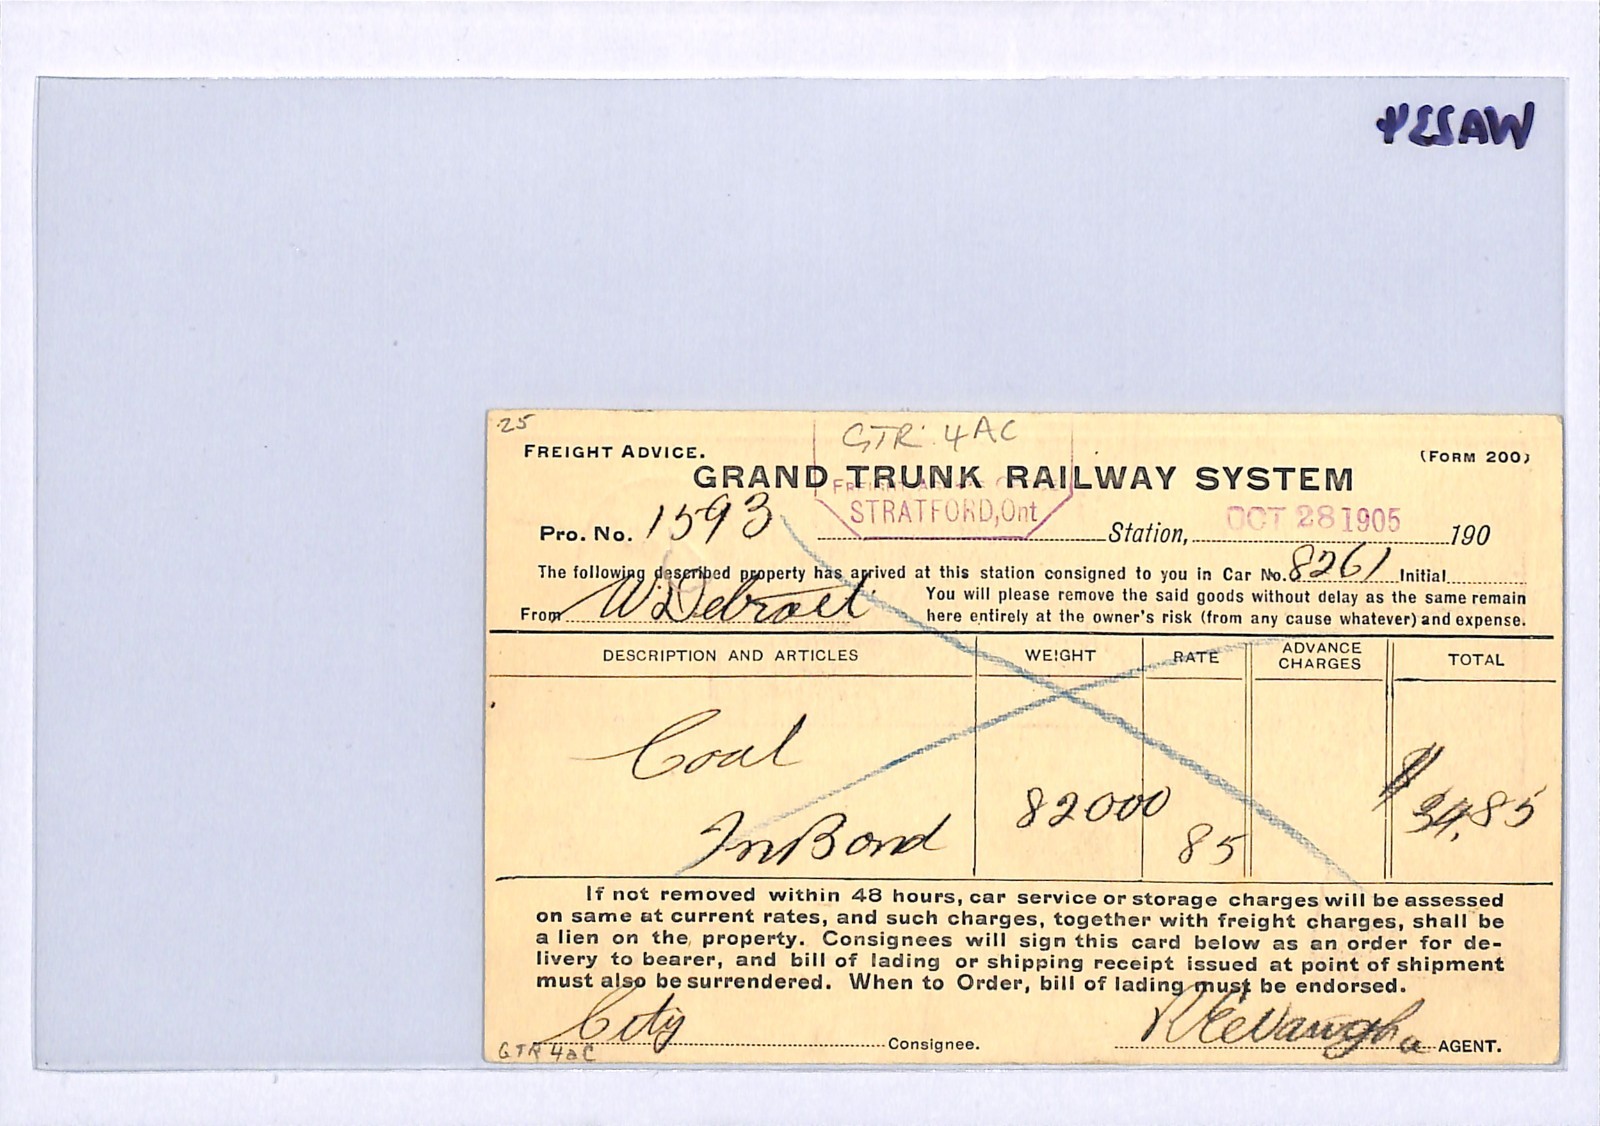 WA234
25
GTR 4AC
FREIGHT ADVICE.
(FORM 200)
GRAND TRUNK RAILWAY SYSTEM
STRATFORD, Ont
Pro. No. 1593 Station, OCT 28 1905 190
The following described property has arrived at this station consigned to you in Car No. 8261 Initial
From W. Detroit
You will please remove the said goods without delay as the same remain
here entirely at the owner's risk (from any cause whatever) and expense.
DESCRIPTION AND ARTICLES WEIGHT RATE ADVANCE CHARGES TOTAL
Coal
In Bond 82000 85 $ 34.85
If not removed within 48 hours, car service or storage charges will be assessed
on same at current rates, and such charges, together with freight charges, shall be
a lien on the property. Consignees will sign this card below as an order for de-
livery to bearer, and bill of lading or shipping receipt issued at point of shipment
must also be surrendered. When to Order, bill of lading must be endorsed.
City Consignee. AGENT.
GTR 4aC